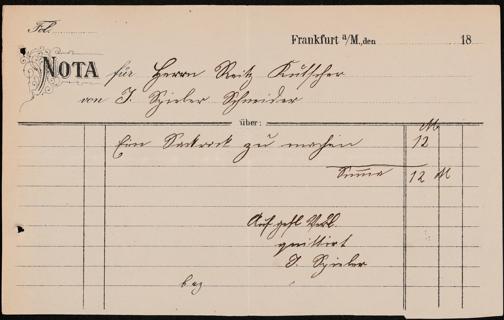 Fol.
Frankfurt a/M., den 18
NOTA für Herrn Reitz Kutscher
von J. Spieler Schneider
über:
M
Ein Sackrock zu machen 12
Summe 12 M
Auf gefl Verl.
quittirt
J. Spieler
bez